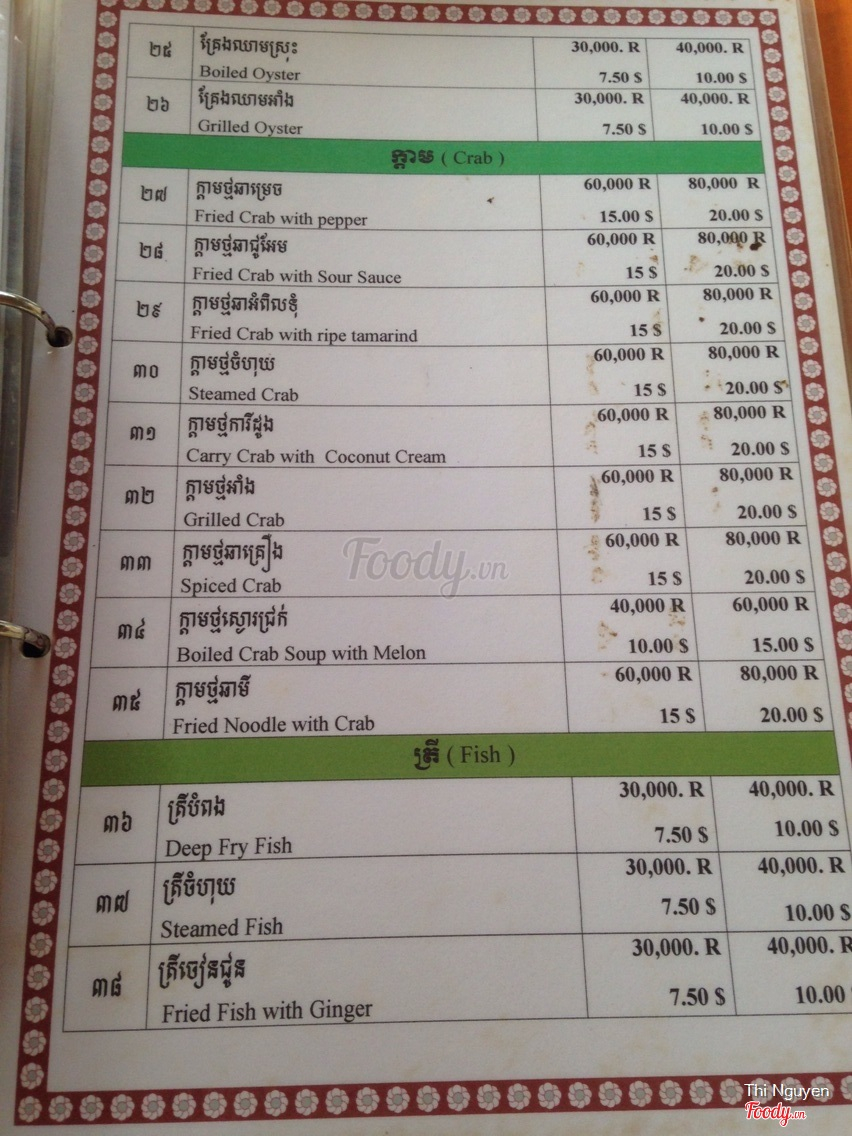 ២៥ គ្រែងឈាមស្រុះ 30,000. R 40,000. R
Boiled Oyster 7.50 $ 10.00 $
២៦ គ្រែងឈាមអាំង 30,000. R 40,000. R
Grilled Oyster 7.50 $ 10.00 $
ក្តាម ( Crab )
២៧ ក្តាមថ្មឆាម្រេច 60,000 R 80,000 R
Fried Crab with pepper 15.00 $ 20.00 $
២៨ ក្តាមថ្មឆាជូអែម 60,000 R 80,000 R
Fried Crab with Sour Sauce 15 $ 20.00 $
២៩ ក្តាមថ្មឆាអំពិលទុំ 60,000 R 80,000 R
Fried Crab with ripe tamarind 15 $ 20.00 $
៣០ ក្តាមថ្មចំហុយ 60,000 R 80,000 R
Steamed Crab 15 $ 20.00 $
៣១ ក្តាមថ្មការីដូង 60,000 R 80,000 R
Carry Crab with Coconut Cream 15 $ 20.00 $
៣២ ក្តាមថ្មអាំង 60,000 R 80,000 R
Grilled Crab 15 $ 20.00 $
៣៣ ក្តាមថ្មឆាគ្រឿង 60,000 R 80,000 R
Spiced Crab 15 $ 20.00 $
៣៤ ក្តាមថ្មស្ងោរជ្រក់ 40,000 R 60,000 R
Boiled Crab Soup with Melon 10.00 $ 15.00 $
៣៥ ក្តាមថ្មឆាមី 60,000 R 80,000 R
Fried Noodle with Crab 15 $ 20.00 $
ត្រី ( Fish )
៣៦ ត្រីបំពង 30,000. R 40,000. R
Deep Fry Fish 7.50 $ 10.00 $
៣៧ ត្រីចំហុយ 30,000. R 40,000. R
Steamed Fish 7.50 $ 10.00 $
៣៨ ត្រីចៀនជូន 30,000. R 40,000. R
Fried Fish with Ginger 7.50 $ 10.00
Foody.vn
Thi Nguyen
Foody.vn